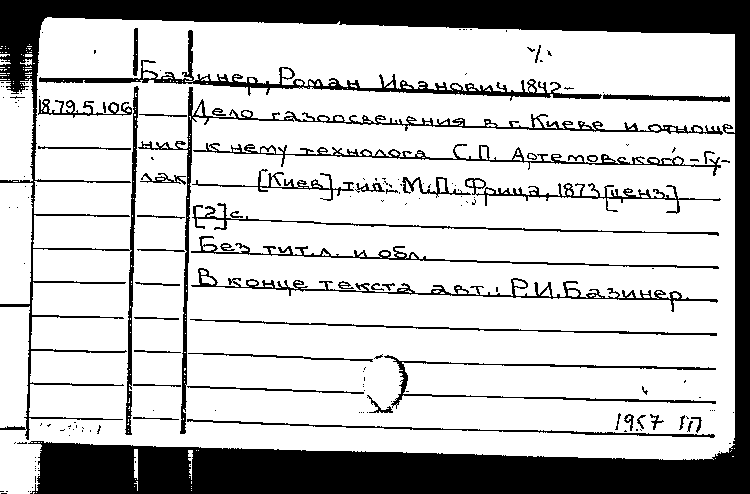 Базинер, Роман Иванович, 1842-
18.79.5.106 Дело газоосвещения в г. Киеве и отноше
ние к нему технолога С.П. Артемовского-Гу-
лак. [Киев], тип. М.П. Фрица, 1873 [ценз.]
[2] с.
Без тит.л. и обл.
В конце текста авт.: Р.И. Базинер.
1957 ГП